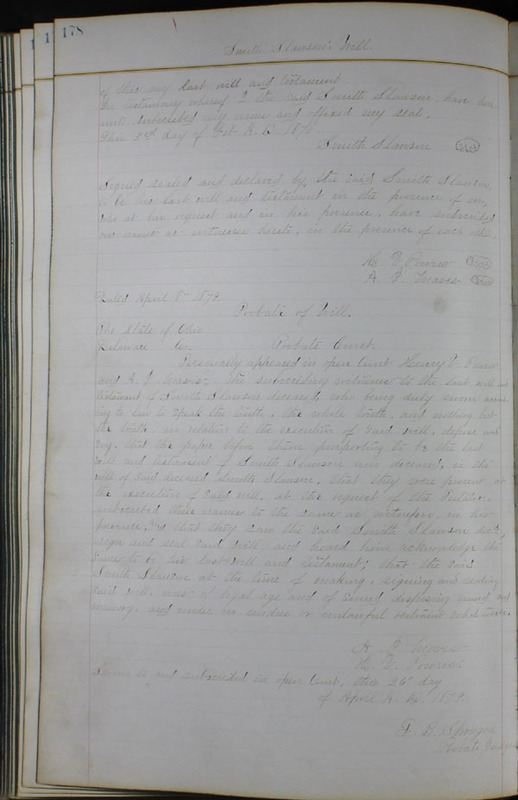 178
Smith Slawson's Will.
of this my last will and testament
In testimony whereof I the said Smith Slawson, have here
unto subscribed my name and affixed my seal.
This 3rd day of Oct A. D. 187
Smith Slawson
Signed sealed and declared by the said Smith Slawson,
to be his last will and testament in the presence of us,
who at his request and in his presence, have subscribed
our names as witnesses hereto, in the presence of each other.
H. D.
A. J.
April 8th 1879
Probate of Will.
The State of Ohio
Delaware Co. Probate Court.
Personally appeared in open Court Henry D.
and A. J. the subscribing witnesses to the last will and
testament of Smith Slawson deceased, who being duly sworn
to speak the truth, the whole truth, and nothing but
the truth in relation to the execution of said will, depose and
say, that the paper before them purporting to be the last
will and testament of Smith Slawson now deceased, is the
will of said deceased Smith Slawson, that they were present at
the execution of said will, at the request of the Testator,
subscribed their names to the same as witnesses, in his
presence, that they saw the said Smith Slawson
sign and seal said will, and heard him acknowledge the
same to be his last will and testament; that the said
Smith Slawson at the time of making, signing and sealing
said will, was of legal age and of sound disposing mind and
memory, and under no undue or unlawful restraint whatever.
A. J.
H. D.
Sworn to and subscribed in open Court, this 26 day
of April A. D. 1879.
F. B. Sprague
Probate Judge